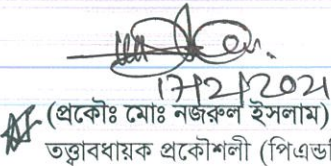 17/2/2021
(প্রকৌঃ মোঃ নজরুল ইসলাম)
তত্ত্বাবধায়ক প্রকৌশলী (পিএন্ড